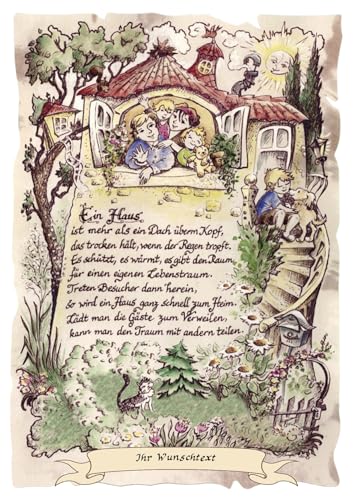 Ein Haus
ist mehr als ein Dach überm Kopf,
das trocken hält, wenn der Regen tropft.
Es schützt, es wärmt, es gibt den Raum
für einen eigenen Lebenstraum.
Treten Besucher dann herein,
so wird ein Haus ganz schnell zum Heim.
Lädt man die Gäste zum Verweilen,
kann man den Traum mit andern teilen.
Ihr Wunschtext